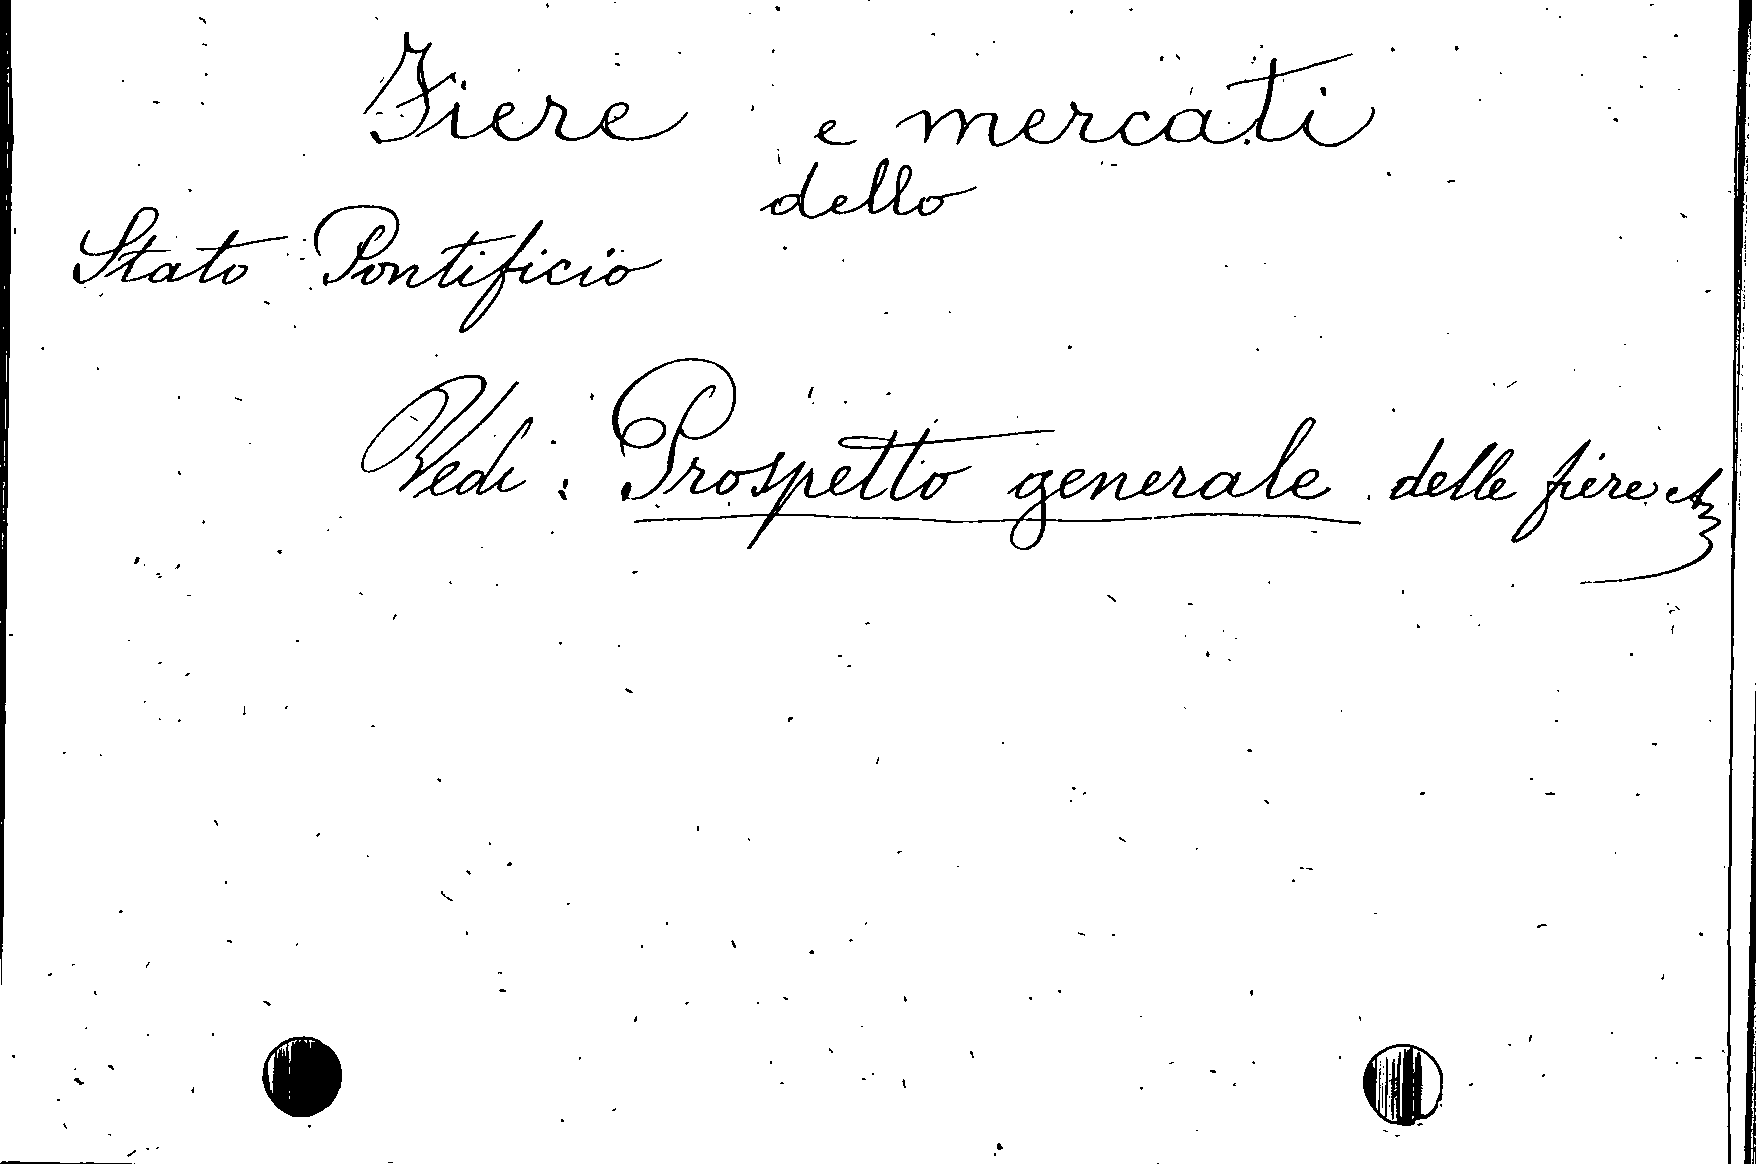 Fiere e mercati
dello
Stato Pontificio
Vedi: Prospetto generale delle fiere